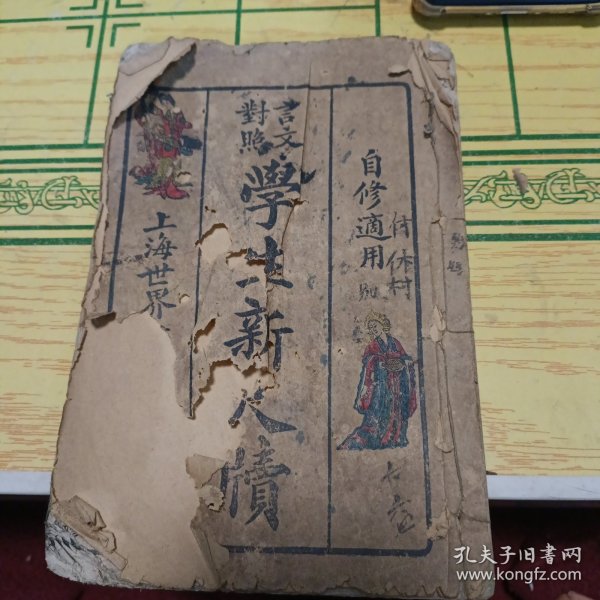 自修適用
言文
對照
學生新尺牘
上海世界
孔夫子旧书网
www.kongfz.com